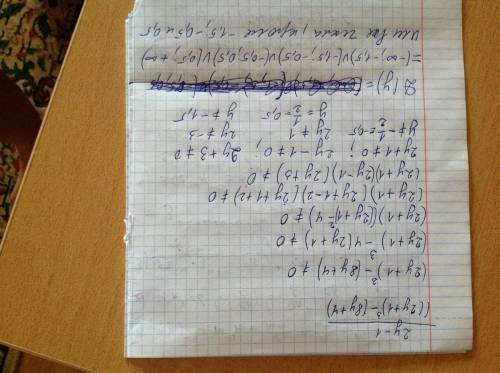 2y-1
((2y+1)³-(8y+4)
(2y+1)³-(8y+4) ≠ 0
(2y+1)³-4(2y+1) ≠ 0
(2y+1)((2y+1)²-4) ≠ 0
(2y+1)(2y+1-2)(2y+1+2) ≠ 0
(2y+1)(2y-1)(2y+3) ≠ 0
2y+1 ≠ 0; 2y-1 ≠ 0; 2y+3 ≠ 0
y ≠ -1/2 = -0,5 2y ≠ 1 2y ≠ -3
y = 1/2 = 0,5 y ≠ -1,5
D(y) =
= (-∞; -1,5)∨(-1,5; -0,5)∨(-0,5; 0,5)∨(0,5; +∞)
или все числа, кроме -1,5; -0,5 и 0,5